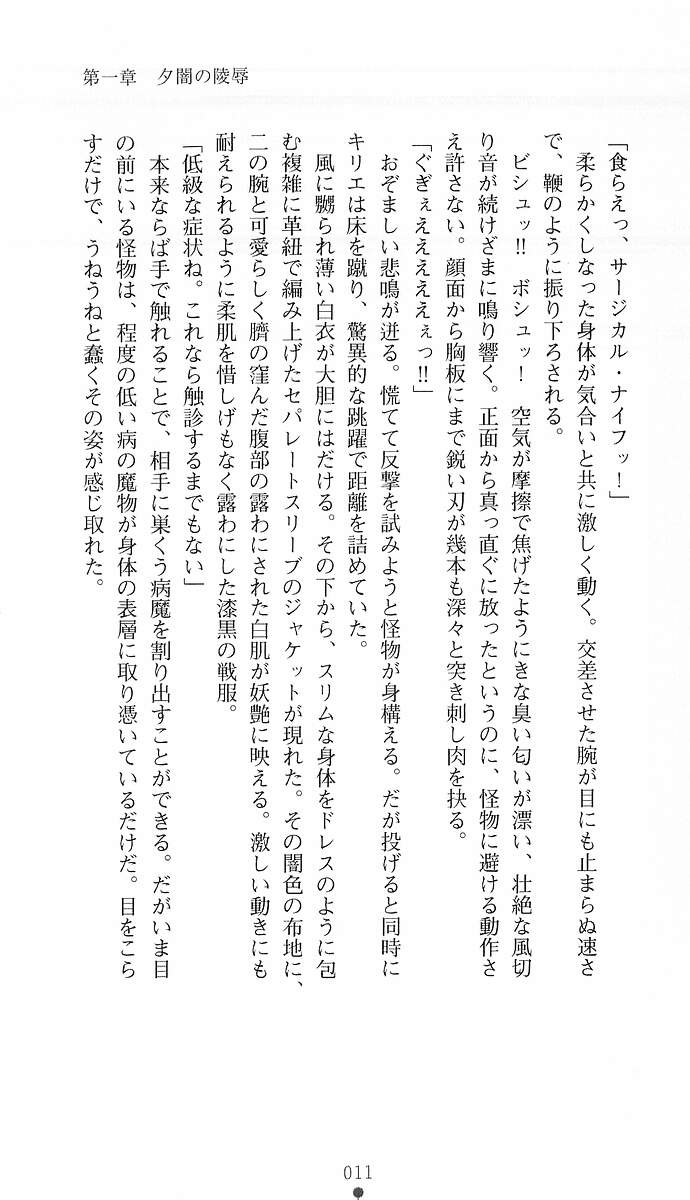 第一章　夕闇の陵辱
「食らえっ、サージカル・ナイフッ！」
　柔らかくしなった身体が気合いと共に激しく動く。交差させた腕が目にも止まらぬ速さ
で、鞭のように振り下ろされる。
　ビシュッ!!　ボシュッ！　空気が摩擦で焦げたようにきな臭い匂いが漂い、壮絶な風切
り音が続けざまに鳴り響く。正面から真っ直ぐに放ったというのに、怪物に避ける動作さ
え許さない。顔面から胸板にまで鋭い刃が幾本も深々と突き刺し肉を抉る。
「ぐぎぇえええええぇっ!!」
　おぞましい悲鳴が迸る。慌てて反撃を試みようと怪物が身構える。だが投げると同時に
キリエは床を蹴り、驚異的な跳躍で距離を詰めていた。
　風に嬲られ薄い白衣が大胆にはだける。その下から、スリムな身体をドレスのように包
む複雑に革紐で編み上げたセパレートスリーブのジャケットが現れた。その闇色の布地に、
二の腕と可愛らしく臍の窪んだ腹部の露わにされた白肌が妖艶に映える。激しい動きにも
耐えられるように柔肌を惜しげもなく露わにした漆黒の戦服。
「低級な症状ね。これなら触診するまでもない」
　本来ならば手で触れることで、相手に巣くう病魔を割り出すことができる。だがいま目
の前にいる怪物は、程度の低い病の魔物が身体の表層に取り憑いているだけだ。目をこら
すだけで、うねうねと蠢くその姿が感じ取れた。
011